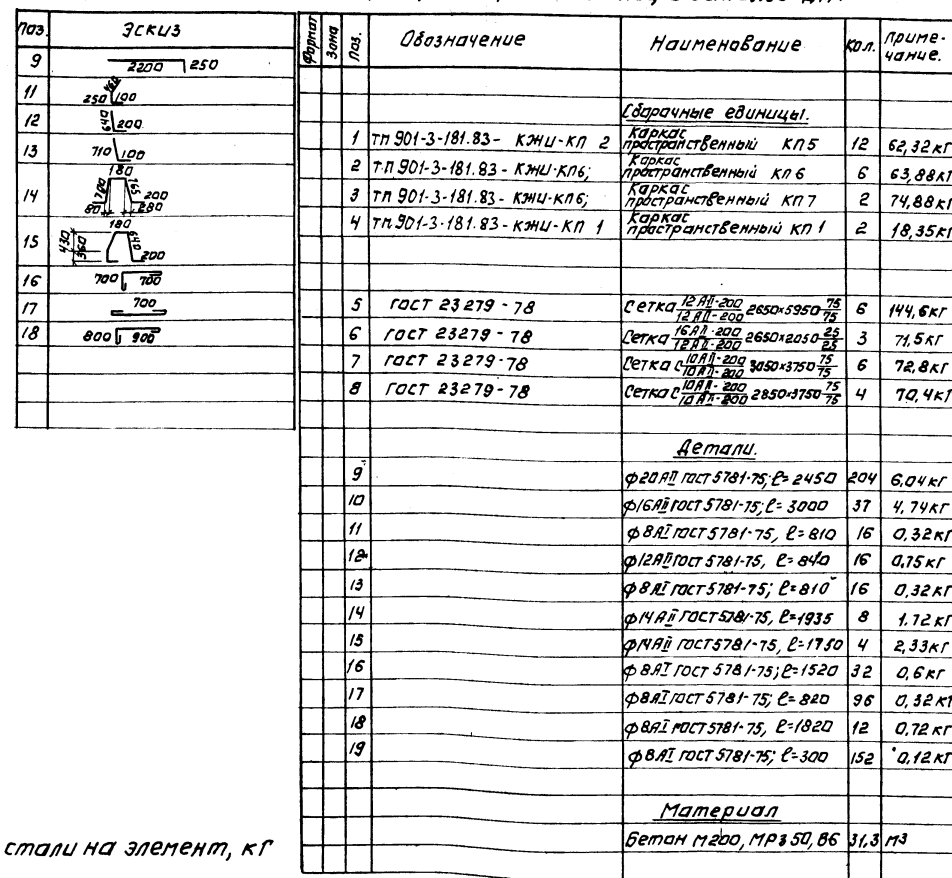 Поз. Эскиз
9 2200 250
11 250 100
12 640 200
13 710 100
14 180 80 200 280
15 180 430 360 640 200
16 700 700
17 700
18 800 900
Формат Зона Поз. Обозначение Наименование Кол. Приме-чание.
Сборочные единицы.
1 ТП 901-3-181.83-КЖИ-КП 2 Каркас пространственный КП5 12 62,32кг
2 Т.П 901-3-181.83-КЖИ-КП6; Каркас пространственный КП6 6 63,88кг
3 ТП 901-3-181.83-КЖИ-КП6; Каркас пространственный КП7 2 74,88кг
4 ТП 901-3-181.83-КЖИ-КП 1 Каркас пространственный КП1 2 18,35кг
5 ГОСТ 23279-78 Сетка 12АII-200/12АII-200 2650×5950 75/75 6 144,6кг
6 ГОСТ 23279-78 Сетка 16АII-200/12АII-200 2650×2050 25/25 3 71,5кг
7 ГОСТ 23279-78 Сетка С 10АII-200/10АII-200 3050×3750 75/75 6 72,8кг
8 ГОСТ 23279-78 Сетка С 10АII-200/10АII-200 2850×3750 75/75 4 70,4кг
Детали.
9 ф20АII ГОСТ 5781-75; ℓ=2450 204 6,04кг
10 ф16АII ГОСТ 5781-75; ℓ=3000 37 4,74кг
11 ф8АI ГОСТ 5781-75, ℓ=810 16 0,32кг
12 ф12АII ГОСТ 5781-75, ℓ=840 16 0,75кг
13 ф8АI ГОСТ 5781-75; ℓ=810 16 0,32кг
14 ф14АII ГОСТ 5781-75, ℓ=1935 8 1,72кг
15 ф14АII ГОСТ 5781-75, ℓ=1750 4 2,33кг
16 ф8АI ГОСТ 5781-75; ℓ=1520 32 0,6кг
17 ф8АI ГОСТ 5781-75; ℓ=820 96 0,32кг
18 ф8АI ГОСТ 5781-75, ℓ=1820 12 0,72кг
19 ф8АI ГОСТ 5781-75; ℓ=300 152 0,12кг
Материал
Бетон М200, МРЗ 50, В6 31,3 м3
стали на элемент, кг